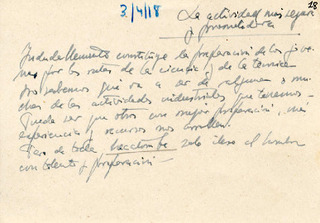 18
3/4/18
La actividad más segura
y prometedora
Indudablemente constituye la preparación de los jóve-
nes por las rutas de la ciencia y de la técnica
No sabemos que va a ser de algunas o mu-
chas de las actividades industriales que tenemos.
Puede ser que otros con mejor preparación, más
experiencia y recursos nos arrollen.
Pero de toda hecatombe sale ileso el hombre
con talento y preparación.